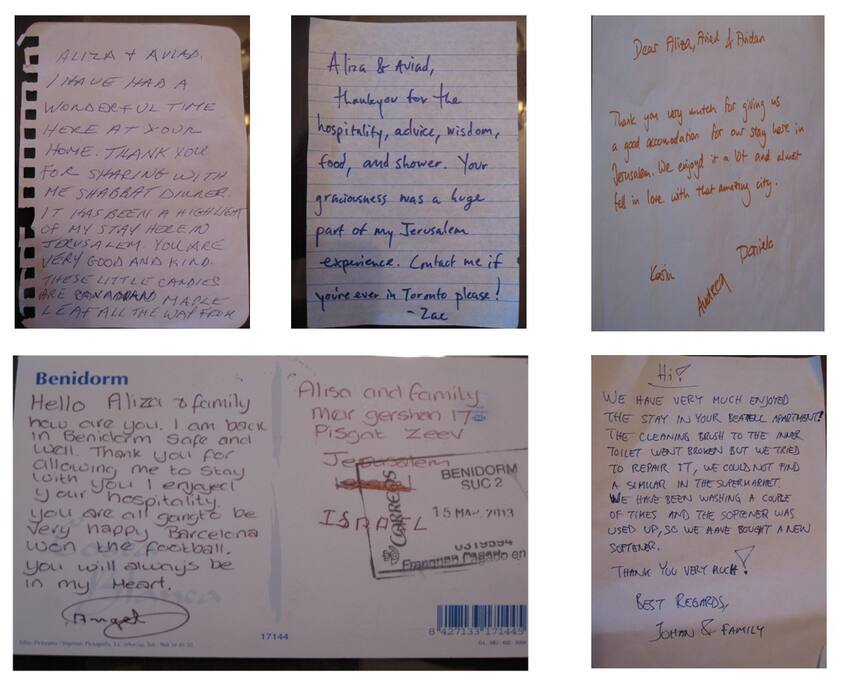 ALIZA + AVIAD.
I HAVE HAD A
WONDERFUL TIME
HERE AT YOUR
HOME. THANK YOU
FOR SHARING WITH
ME SHABBAT DINNER
IT HAS BEEN A HIGHLIGHT
OF MY STAY HERE IN
JERUSALEM. YOU ARE
VERY GOOD AND KIND.
THESE LITTLE CANDIES
ARE CANADIAN MAPLE
LEAF ALL THE WAY FROM
Aliza & Aviad,
thankyou for the
hospitality, advice, wisdom,
food, and shower. Your
graciousness was a huge
part of my Jerusalem
experience. Contact me if
you're ever in Toronto please!
- Zac
Dear Aliza, Aviad & Avidan
Thank you very mutch for giving us
a good accomodation for our stay here in
Jerusalem. We enjoyd it a lot and almost
fell in love with that amazing city.
Karin
Audrey
Daniela
Benidorm
Hello Aliza & family
how are you. I am back
in Benidorm Safe and
well. Thank you for
allowing me to stay
with you I enjoyed
your hospitality.
you are all gongto be
very happy Barcelona
won the football.
you will always be
in my Heart.
Angel
Alisa and family
mar gershon 17
Pisgat Zeev
Jerusalem
ISRAEL
CORREOS
BENIDORM
SUC 2
15 MAY. 2013
0319594
Franqueo Pagado en
17144
8 427133 171445
Hi!
WE HAVE VERY MUCH ENJOYED
THE STAY IN YOUR APARTMENT!
THE CLEANING BRUSH TO THE INNER
TOILET WENT BROKEN BUT WE TRIED
TO REPAIR IT, WE COULD NOT FIND
A SIMILAR IN THE SUPERMARKET.
WE HAVE BEEN WASHING A COUPLE
OF TIMES AND THE SOFTENER WAS
USED UP, SO WE HAVE BOUGHT A NEW
SOFTENER.
THANK YOU VERY MUCH!
BEST REGARDS,
JOHAN & FAMILY